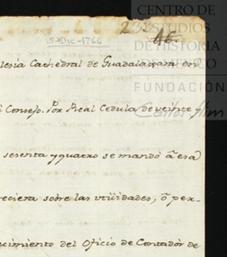 CENTRO DE
ESTUDIOS
DE HISTORIA
FUNDACIÓN
Carlos Slim
5-Dic-1766
46.
lesia Cathedral de Guadalaxara en
l Consejo. Por Real Cedula de veinte
sesenta y quatro se mandó à esa
reciera sobre las utilidades, ó per-
cimiento del Oficio de Contador de